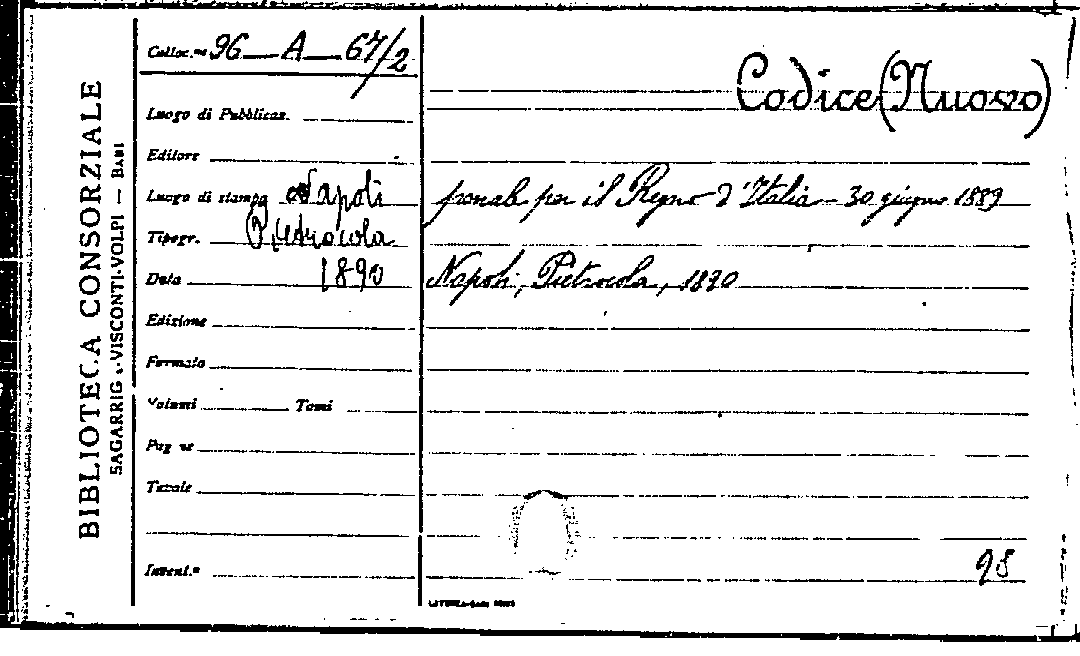 BIBLIOTECA CONSORZIALE
SAGARRIGA-VISCONTI-VOLPI — BARI
Colloc.ne 96 — A — 67/2
Luogo di Pubblicaz.
Editore
Luogo di stampa Napoli
Tipogr. Pietrocola
Data 1890
Edizione
Formato
Volumi Tomi
Pagine
Tavole
Invent.°
Codice (Nuovo)
penale per il Regno d'Italia - 30 giugno 1889
Napoli, Pietrocola, 1890
98